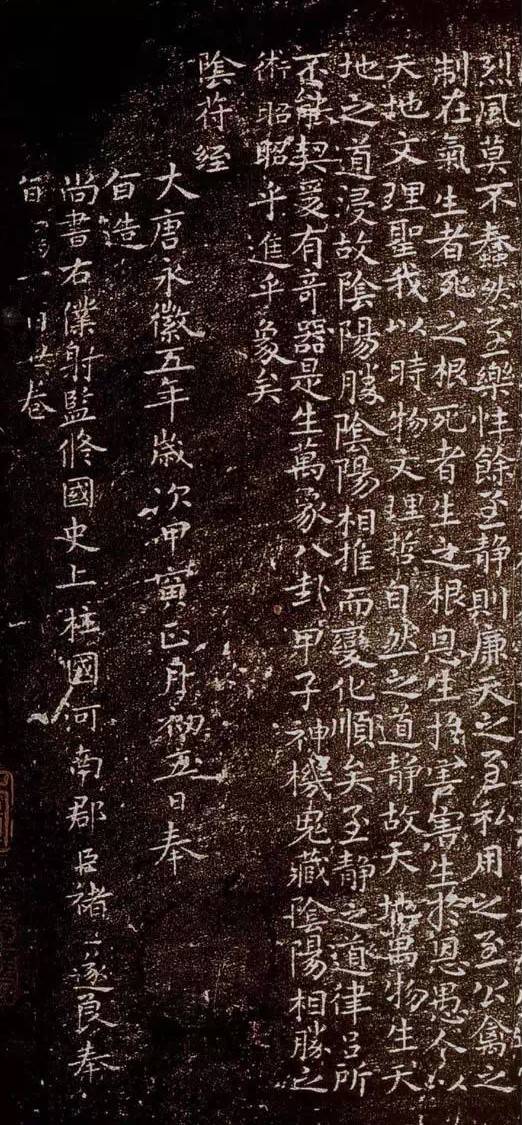 烈風莫不蠢然至樂性餘至静則廉天之至私用之至公禽之
制在氣生者死之根死者生之根恩生扵害害生扵恩愚人以
天地文理聖我以時物文理哲自然之道静故天地萬物生天
地之道浸故陰陽勝陰陽相推而變化順矣至静之道律吕所
不能契爰有奇器是生萬象八卦甲子神機鬼藏陰陽相勝之
術昭昭乎進乎象矣
陰符经
大唐永徽五年嵗次甲寅正月初五日奉
旨造
尚書右僕射監修國史上柱國河南郡臣褚遂良奉
旨寫一百廿卷